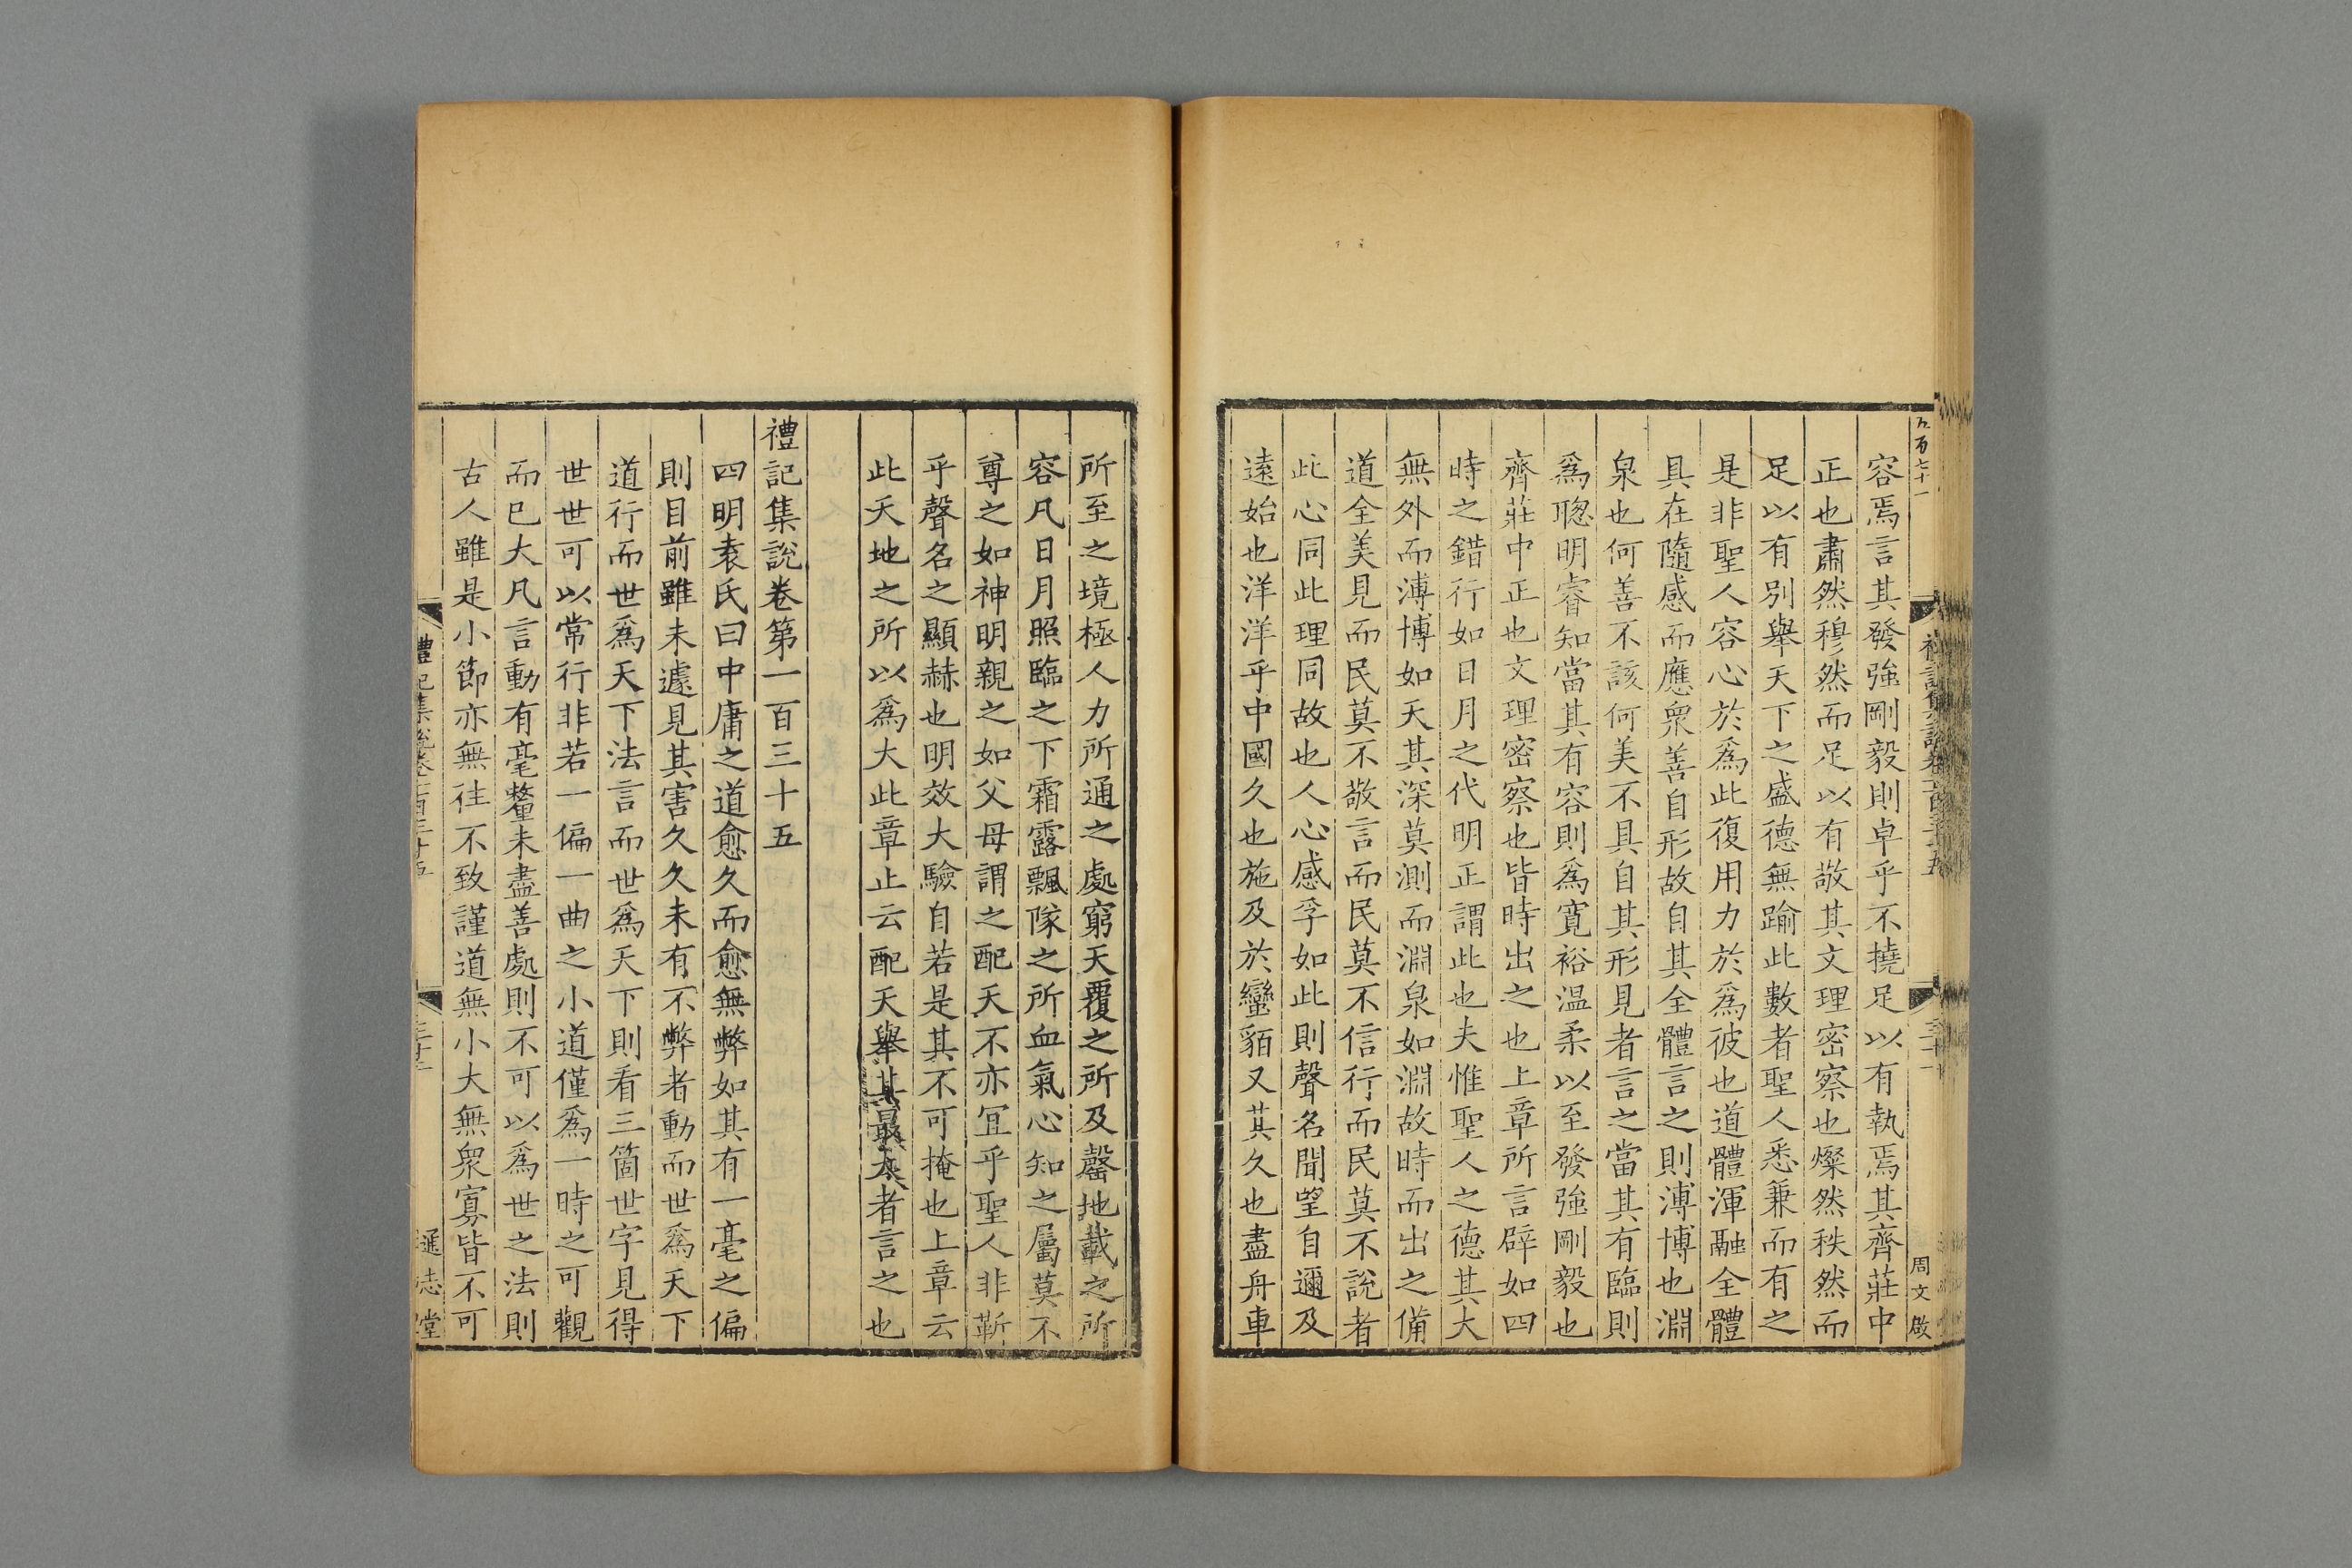 容焉言其發強剛毅則卓乎不撓足以有執焉其齊莊中
正也肅然穆然而足以有敬其文理密察也燦然秩然而
足以有別舉天下之盛德無踰此數者聖人悉兼而有之
是非聖人容心於爲此復用力於爲彼也道體渾融全體
具在隨感而應衆善自形故自其全體言之則溥博也淵
泉也何善不該何美不具自其形見者言之當其有臨則
爲聰明睿知當其有容則爲寬裕温柔以至發強剛毅也
齊莊中正也文理密察也皆時出之也上章所言辟如四
時之錯行如日月之代明正謂此也夫惟聖人之德其大
無外而溥博如天其深莫測而淵泉如淵故時而出之備
道全美見而民莫不敬言而民莫不信行而民莫不說者
此心同此理同故也人心感孚如此則聲名聞望自邇及
遠始也洋洋乎中國久也施及於蠻貊又其久也盡舟車
周文啟
所至之境極人力所通之處窮天覆之所及罄地載之所
容凡日月照臨之下霜露飄隊之所血氣心知之屬莫不
尊之如神明親之如父母謂之配天不亦宜乎聖人非蘄
乎聲名之顯赫也明效大驗自若是其不可掩也上章云
此天地之所以爲大此章止云配天舉其最大者言之也
禮記集說卷第一百三十五
四明袁氏曰中庸之道愈久而愈無弊如其有一毫之偏
則目前雖未遽見其害久久未有不弊者動而世爲天下
道行而世爲天下法言而世爲天下則看三箇世字見得
世世可以常行非若一偏一曲之小道僅爲一時之可觀
而已大凡言動有毫釐未盡善處則不可以爲世之法則
古人雖是小節亦無往不致謹道無小大無衆寡皆不可
禮記集說卷一百三十五
通志堂